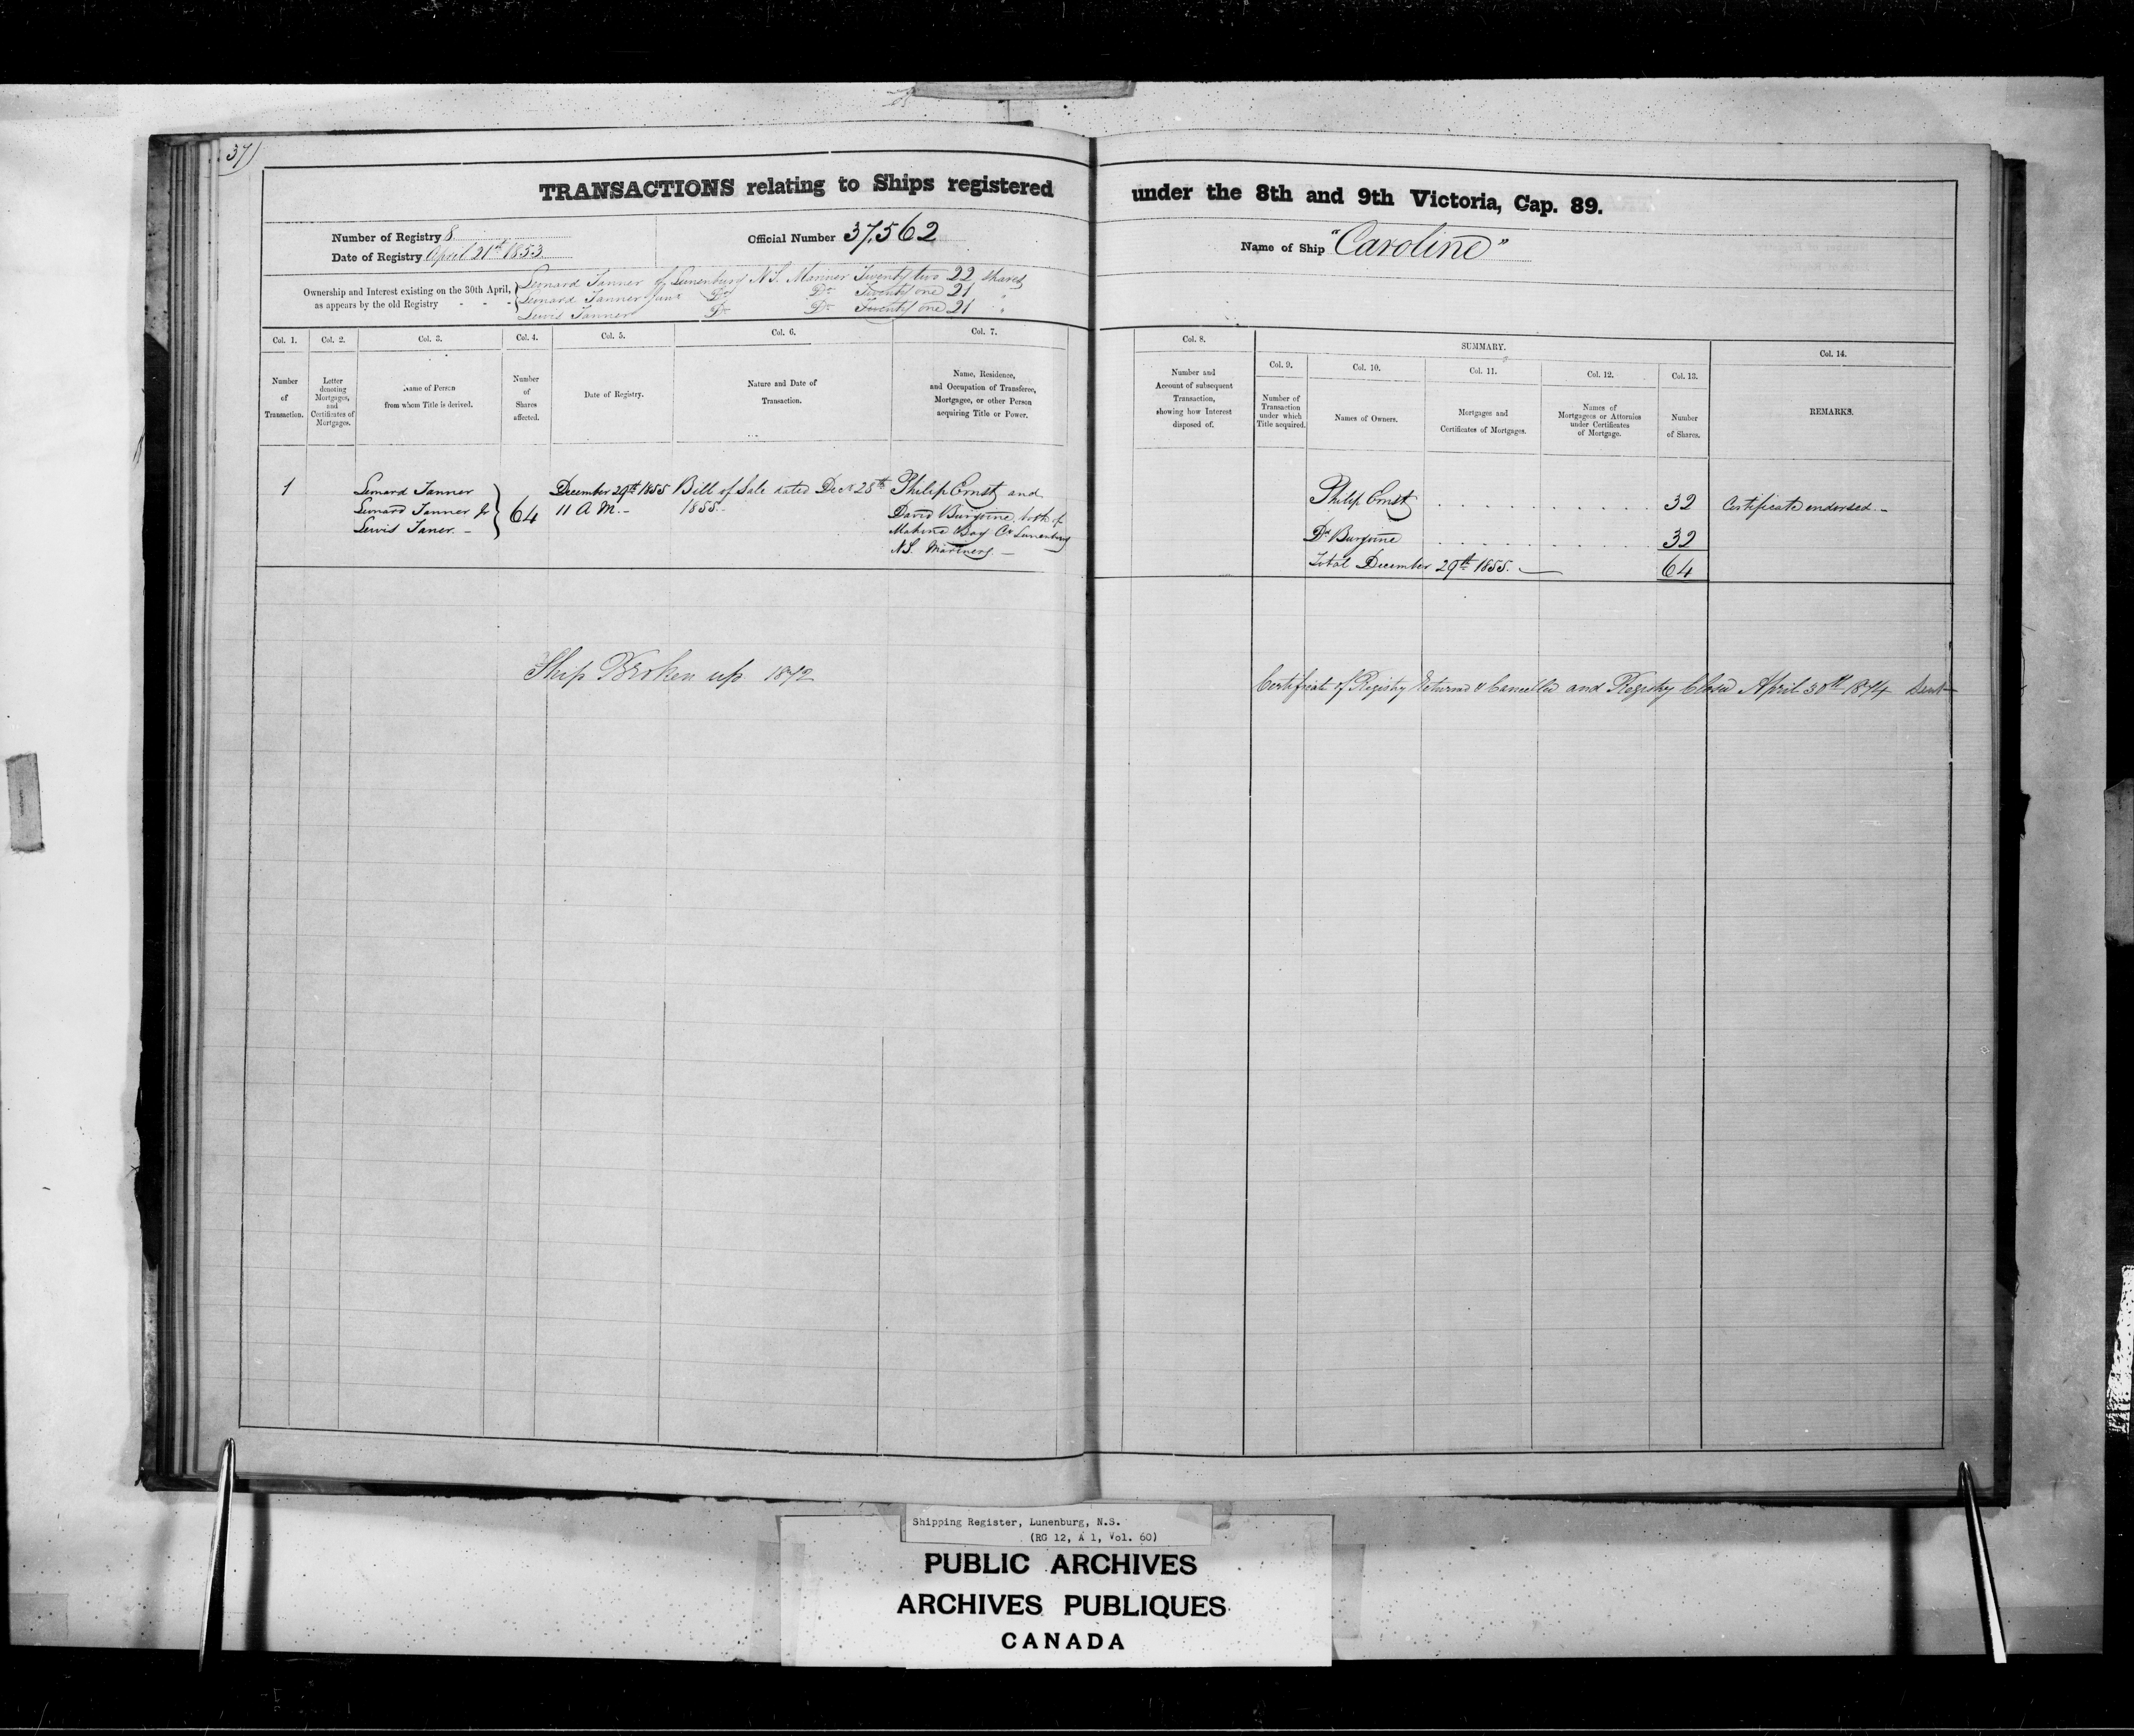 37)
TRANSACTIONS relating to Ships registered under the 8th and 9th Victoria, Cap. 89.
Number of Registry 8
Date of Registry April 21st 1853
Official Number 37,562
Name of Ship "Caroline"
Ownership and Interest existing on the 30th April, as appears by the old Registry
Leonard Tanner of Lunenburg N.S. Mariner Twenty two 22 shares
Leonard Tanner Junr Do Do Twenty one 21 "
Lewis Tanner Do Do Twenty one 21 "
Col. 1. Number of Transaction.
Col. 2. Letter denoting Mortgages, and Certificates of Mortgages.
Col. 3. Name of Person from whom Title is derived.
Col. 4. Number of Shares affected.
Col. 5. Date of Registry.
Col. 6. Nature and Date of Transaction.
Col. 7. Name, Residence, and Occupation of Transferee, Mortgagee, or other Person acquiring Title or Power.
Col. 8. Number and Account of subsequent Transaction, showing how Interest disposed of.
SUMMARY.
Col. 9. Number of Transaction under which Title acquired.
Col. 10. Names of Owners.
Col. 11. Mortgages and Certificates of Mortgages.
Col. 12. Names of Mortgagees or Attornies under Certificates of Mortgage.
Col. 13. Number of Shares.
Col. 14. REMARKS.
1
Leonard Tanner
Leonard Tanner Jr
Lewis Taner
64
December 29th 1855
11 A.M.
Bill of Sale dated Decr 28th
1855.
Philip Ernst and
David Burgoine both of
Mahone Bay Co Lunenburg
N.S. Mariners
Philip Ernst 32 Certificate endorsed.
Dd Burgoine 32
Total December 29th 1855. 64
Ship Broken up 1872
Certificate of Registry Returned & Cancelled and Registry Closed April 30th 1874
Shipping Register, Lunenburg, N.S.
(RG 12, A 1, Vol. 60)
PUBLIC ARCHIVES
ARCHIVES PUBLIQUES
CANADA